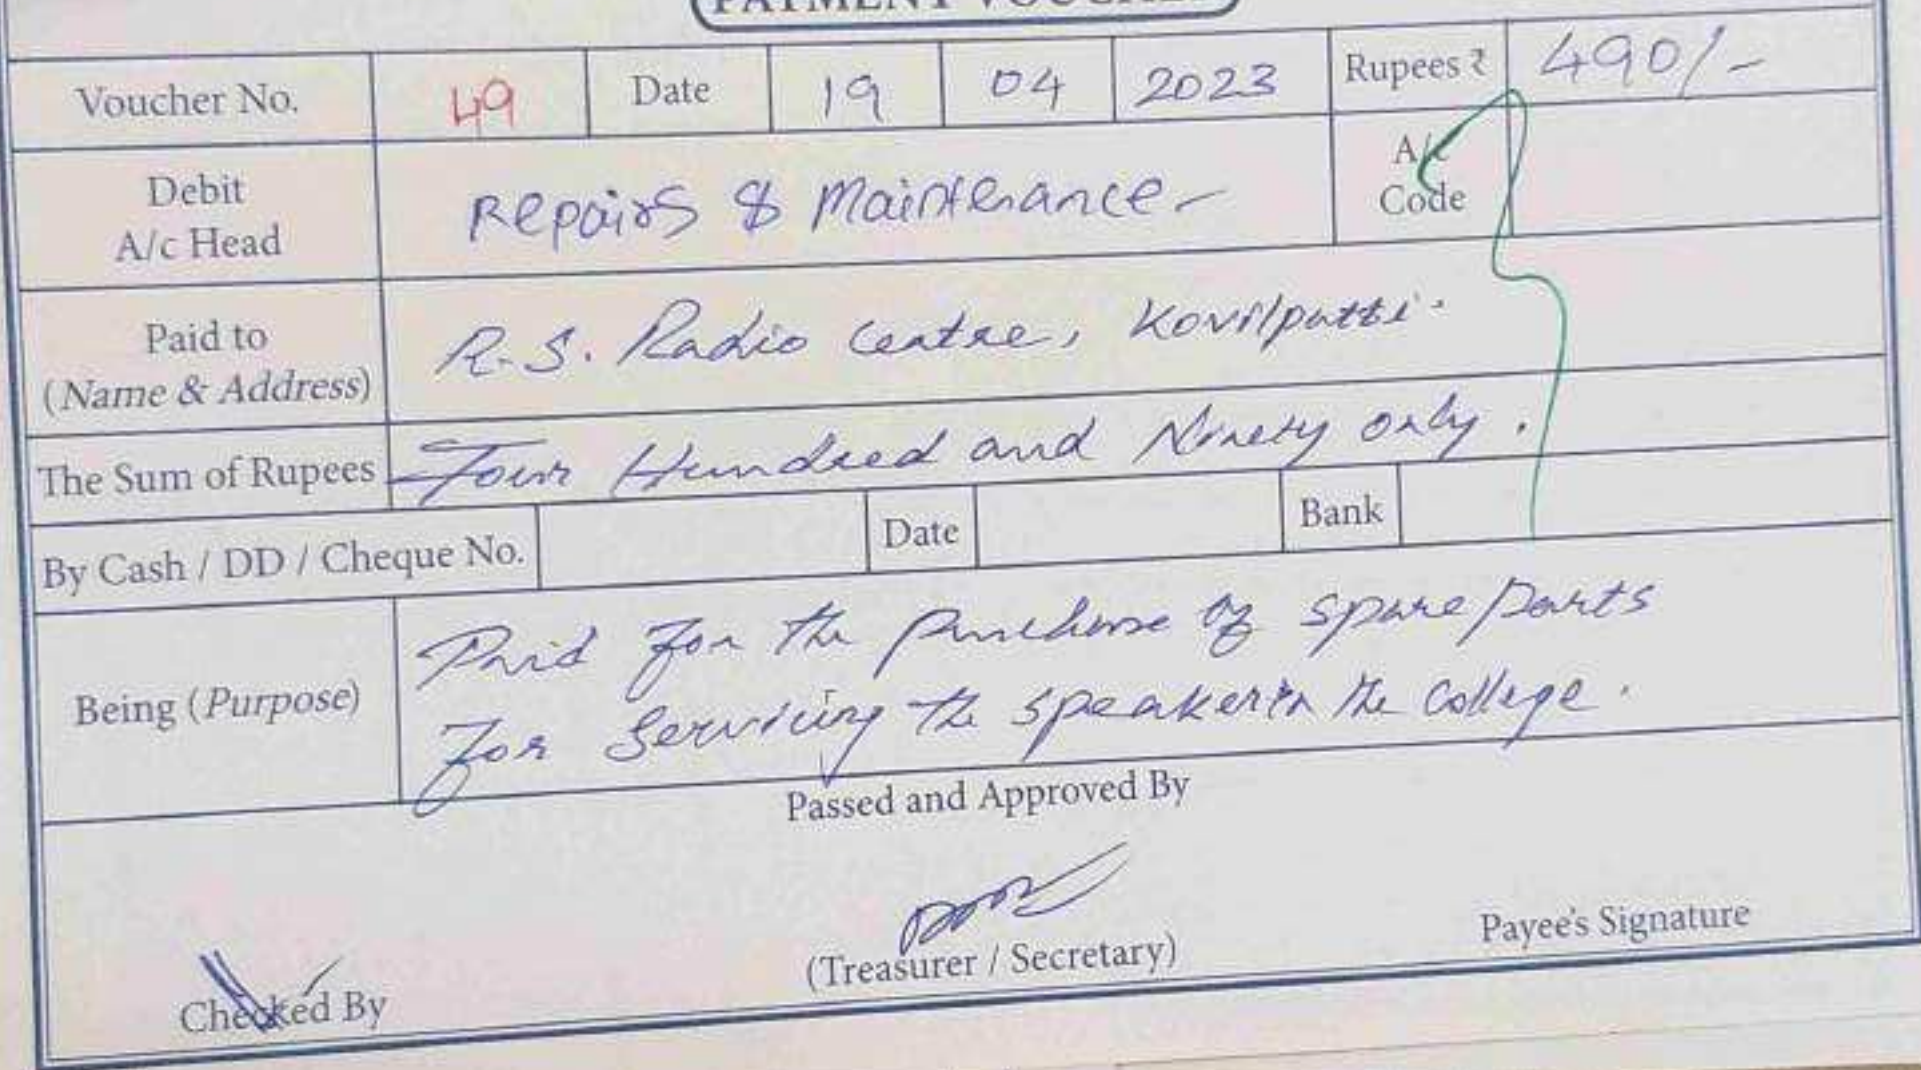 PAYMENT VOUCHER
Voucher No. 49 Date 19 04 2023 Rupees ₹ 490/-
Debit A/c Head Repairs & Maintenance - A/c Code
Paid to (Name & Address) R.S. Radio Centre, Kovilpatti.
The Sum of Rupees Four Hundred and Ninety only.
By Cash / DD / Cheque No. Date Bank
Being (Purpose) Paid for the purchase of spare parts
for servicing the speaker in the college.
Passed and Approved By
Checked By (Treasurer / Secretary) Payee's Signature